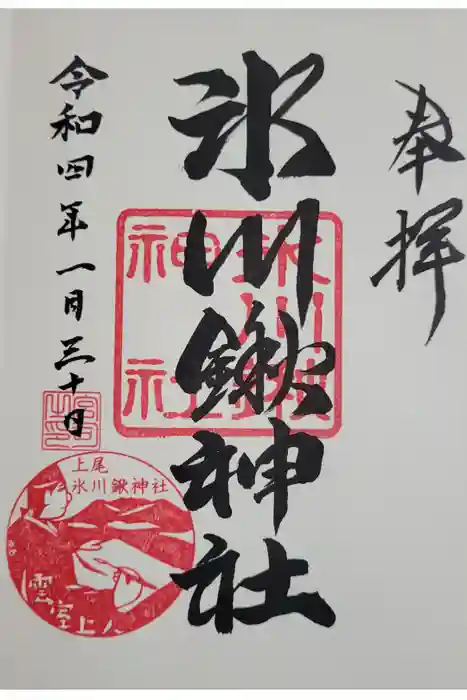 奉拝
氷川鍬神社
氷川鍬神社
令和四年一月三十日
上尾
氷川鍬神社
雲室上人